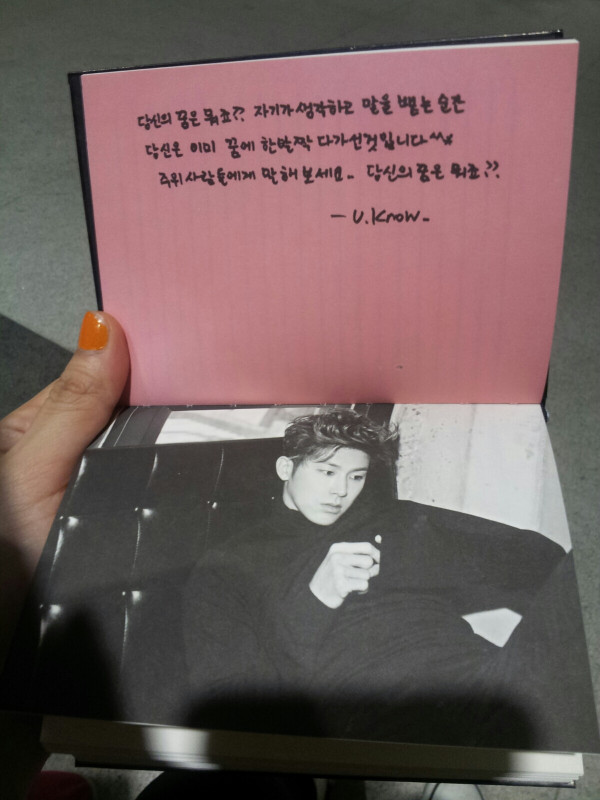 당신의 꿈은 뭐죠?? 자기가 생각하고 말을 뱉는 순간
당신은 이미 꿈에 한발짝 다가선것입니다^^
주위사람들에게 말해 보세요. 당신의 꿈은 뭐죠??
- U.Know.